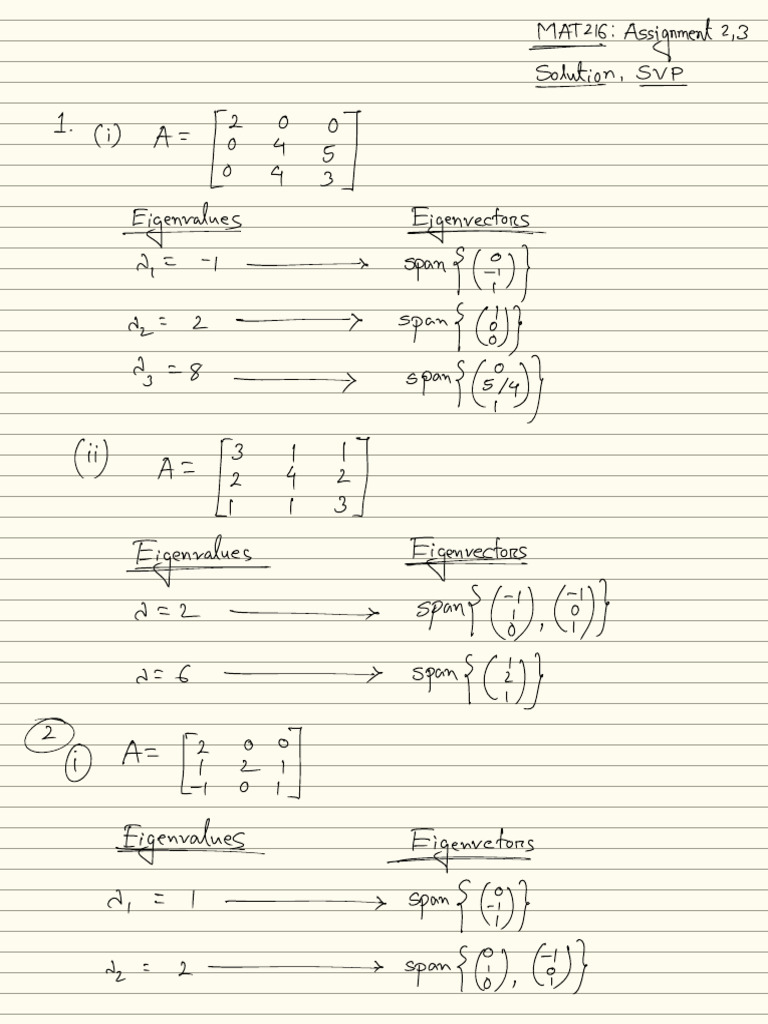 MAT216: Assignment 2,3
Solution, SVP
1. (i) A = [2 0 0
0 4 5
0 4 3]
Eigenvalues Eigenvectors
λ₁ = -1 → span{(0 -1 1)}
λ₂ = 2 → span{(1 0 0)}
λ₃ = 8 → span{(0 5/4 1)}
(ii) A = [3 1 1
2 4 2
1 1 3]
Eigenvalues Eigenvectors
λ = 2 → span{(-1 1 0), (-1 0 1)}
λ = 6 → span{(1 2 1)}
2
i A = [2 0 0
1 2 1
-1 0 1]
Eigenvalues Eigenvectors
λ₁ = 1 → span{(0 -1 1)}
λ₂ = 2 → span{(0 1 0), (-1 0 1)}